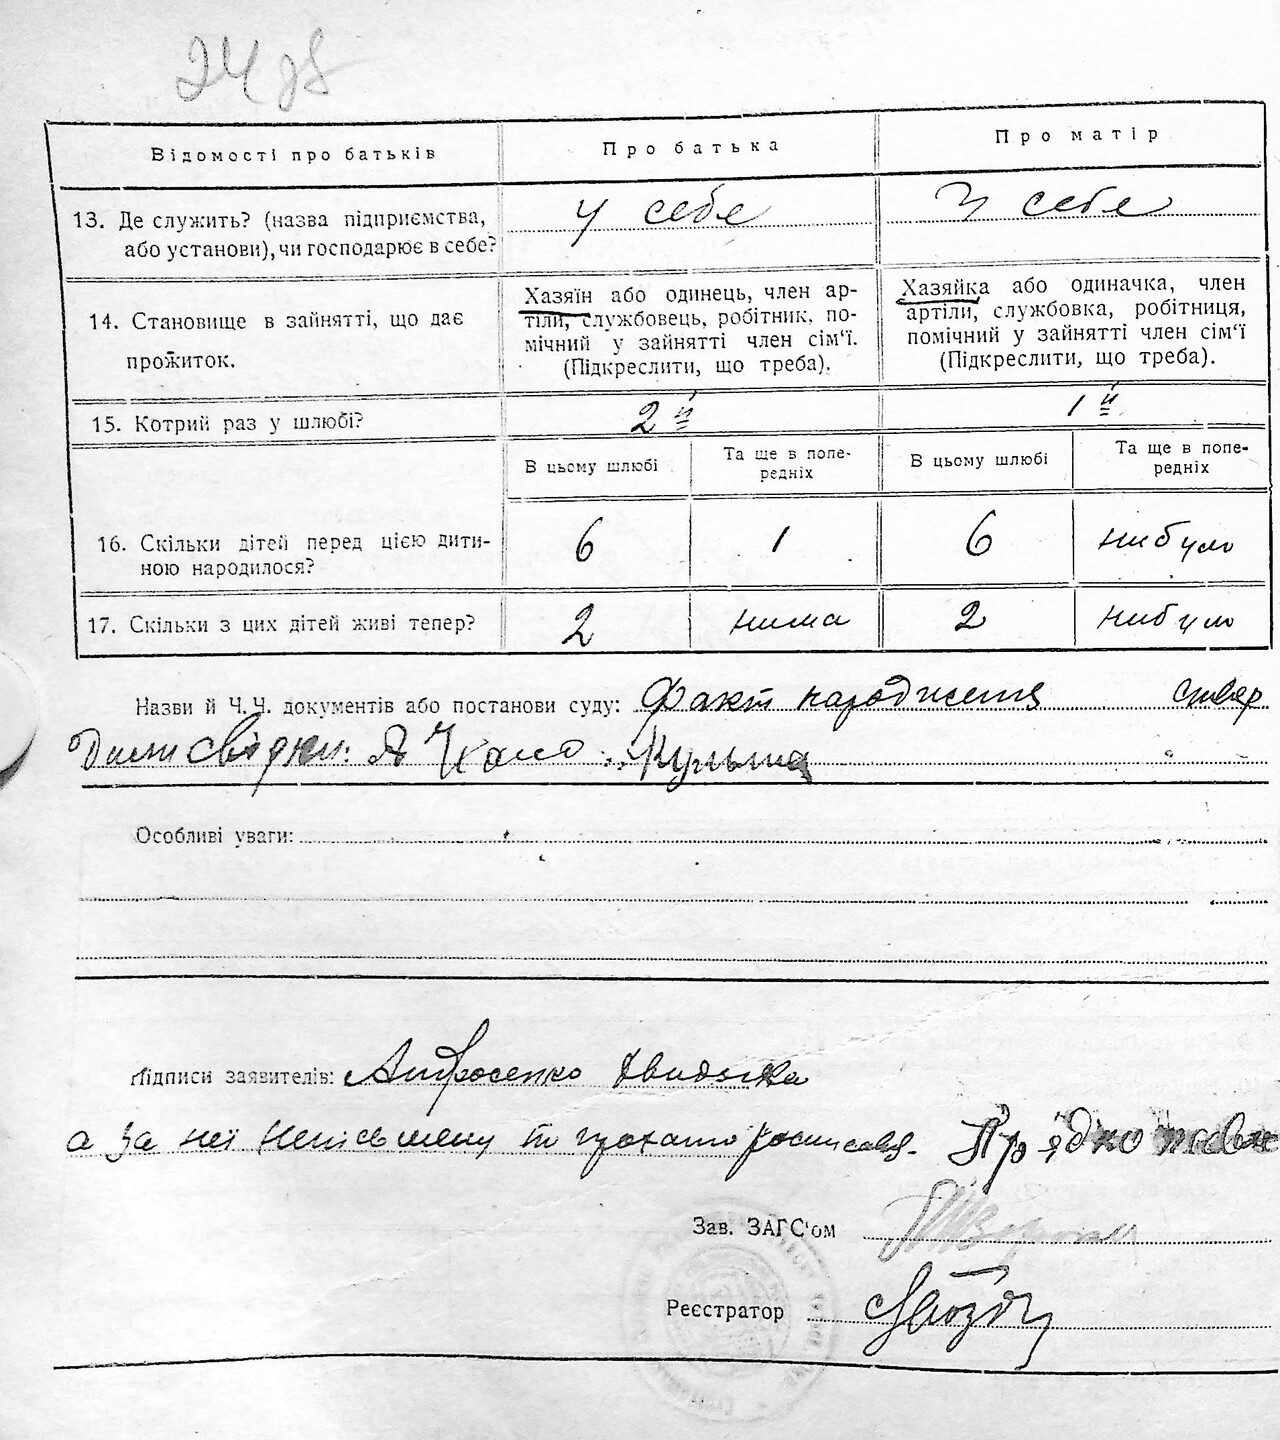 24
Відомості про батьків
Про батька
Про матір
13. Де служить? (назва підприємства,
або установи), чи господарює в себе?
У себе
У себе
14. Становище в зайнятті, що дає
прожиток.
Хазяїн або одинець, член ар-
тіли, службовець, робітник, по-
мічний у зайнятті член сім'ї.
(Підкреслити, що треба).
Хазяйка або одиначка, член
артіли, службовка, робітниця,
помічний у зайнятті член сім'ї
(Підкреслити, що треба).
15. Котрий раз у шлюбі?
2й
1й
В цьому шлюбі
Та ще в попе-
редніх
В цьому шлюбі
Та ще в попе-
редніх
16. Скільки дітей перед цією дити-
ною народилося?
6
1
6
нибуло
17. Скільки з цих дітей живі тепер?
2
нима
2
нибуло
Назви й Ч.Ч. документів або постанови суду: Факт народження ствер
дили свідки: Кульша
Особливі уваги:
Підписи заявителів: Амбросенко
а за неї неписьмену росписавсь. Прядко
Зав. ЗАГС'ом
Реєстратор